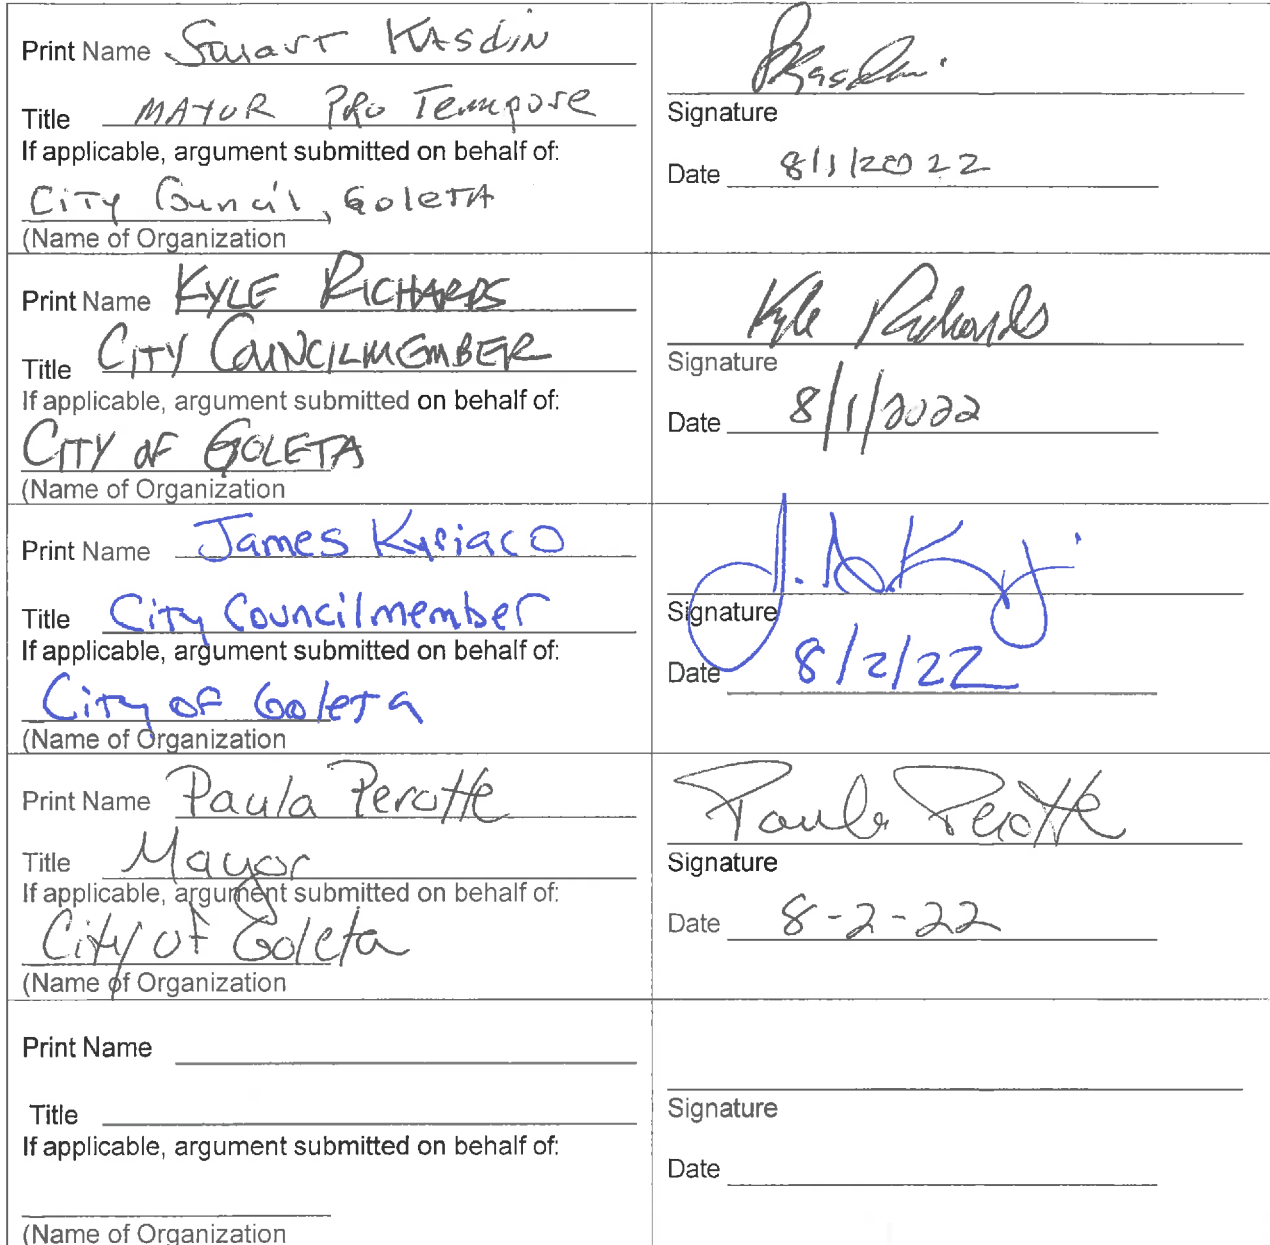 Print Name Stuart Kasdin
Title MAYOR PRO Tempore
If applicable, argument submitted on behalf of:
CITY Council, GoleTA
(Name of Organization
SKasdin
Signature
Date 8/1/2022
Print Name KYLE RICHARDS
Title CITY COUNCILMEMBER
If applicable, argument submitted on behalf of:
CITY OF GOLETA
(Name of Organization
Kyle Richards
Signature
Date 8/1/2022
Print Name James Kyriaco
Title City Councilmember
If applicable, argument submitted on behalf of:
City of Goleta
(Name of Organization
Signature
Date 8/2/22
Print Name Paula Perotte
Title Mayor
If applicable, argument submitted on behalf of:
City of Goleta
(Name of Organization
Paula Perotte
Signature
Date 8-2-22
Print Name
Title
If applicable, argument submitted on behalf of:
(Name of Organization
Signature
Date